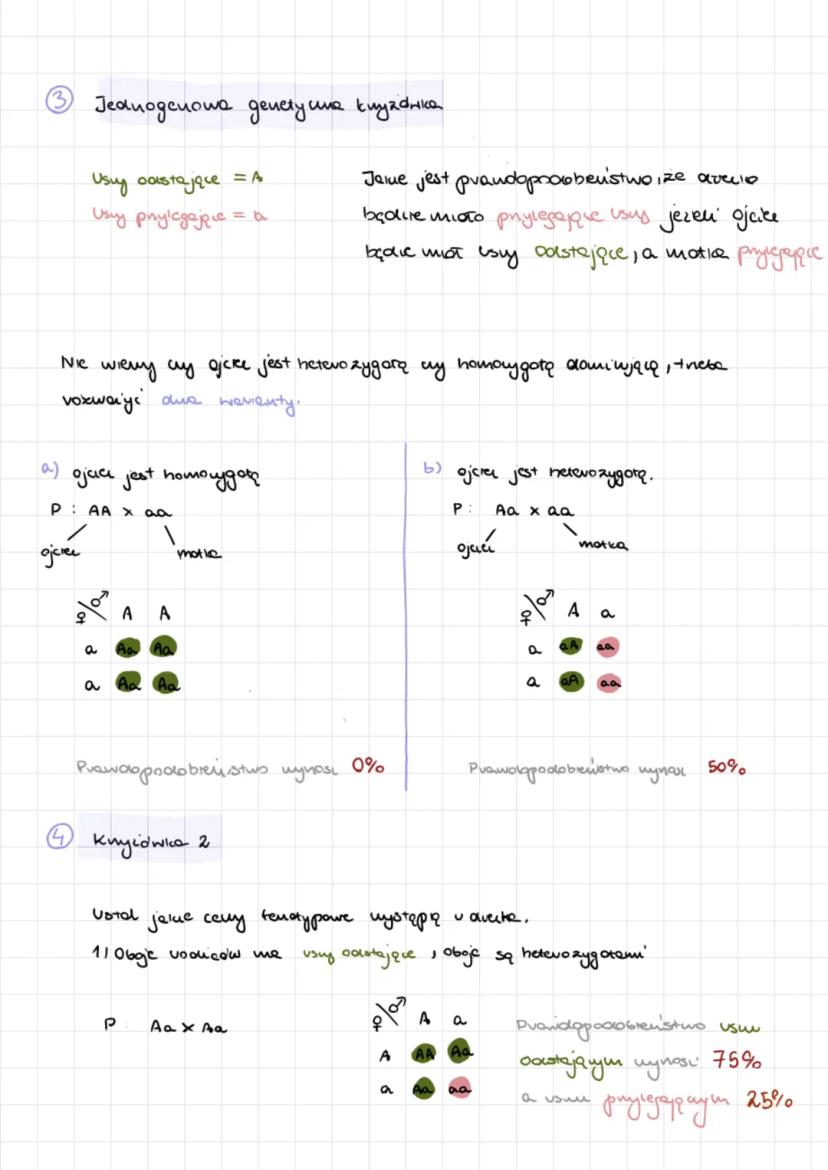 3 Jednogenowa genetyczna krzyżówka
Uszy odstające = A
Uszy przylegające = a
Jakie jest prawdopodobieństwo, że dziecko
będzie miało przylegające uszy jeżeli ojciec
będzie miał uszy odstające, a matka przylegające
Nie wiemy czy ojciec jest heterozygotą czy homozygotą dominującą, trzeba
rozważyć dwa warianty.
a) ojciec jest homozygotą
P : AA x aa
ojciec matka
♀\♂ A A
a Aa Aa
a Aa Aa
Prawdopodobieństwo wynosi 0%
b) ojciec jest heterozygotą.
P : Aa x aa
ojciec matka
♀\♂ A a
a aA aa
a aA aa
Prawdopodobieństwo wynosi 50%
4 Krzyżówka 2
Ustal jakie cechy fenotypowe wystąpią u dziecka.
1) Oboje rodziców ma uszy odstające, oboje są heterozygotami
P : Aa x Aa
♀\♂ A a
A AA Aa
a Aa aa
Prawdopodobieństwo uszu
odstającym wynosi 75%
a uszu przylegającym 25%